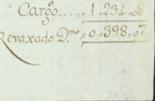 Cargo..... 1 . 294 . 08
Revaxado D.mo .. 0 . 398 . 07